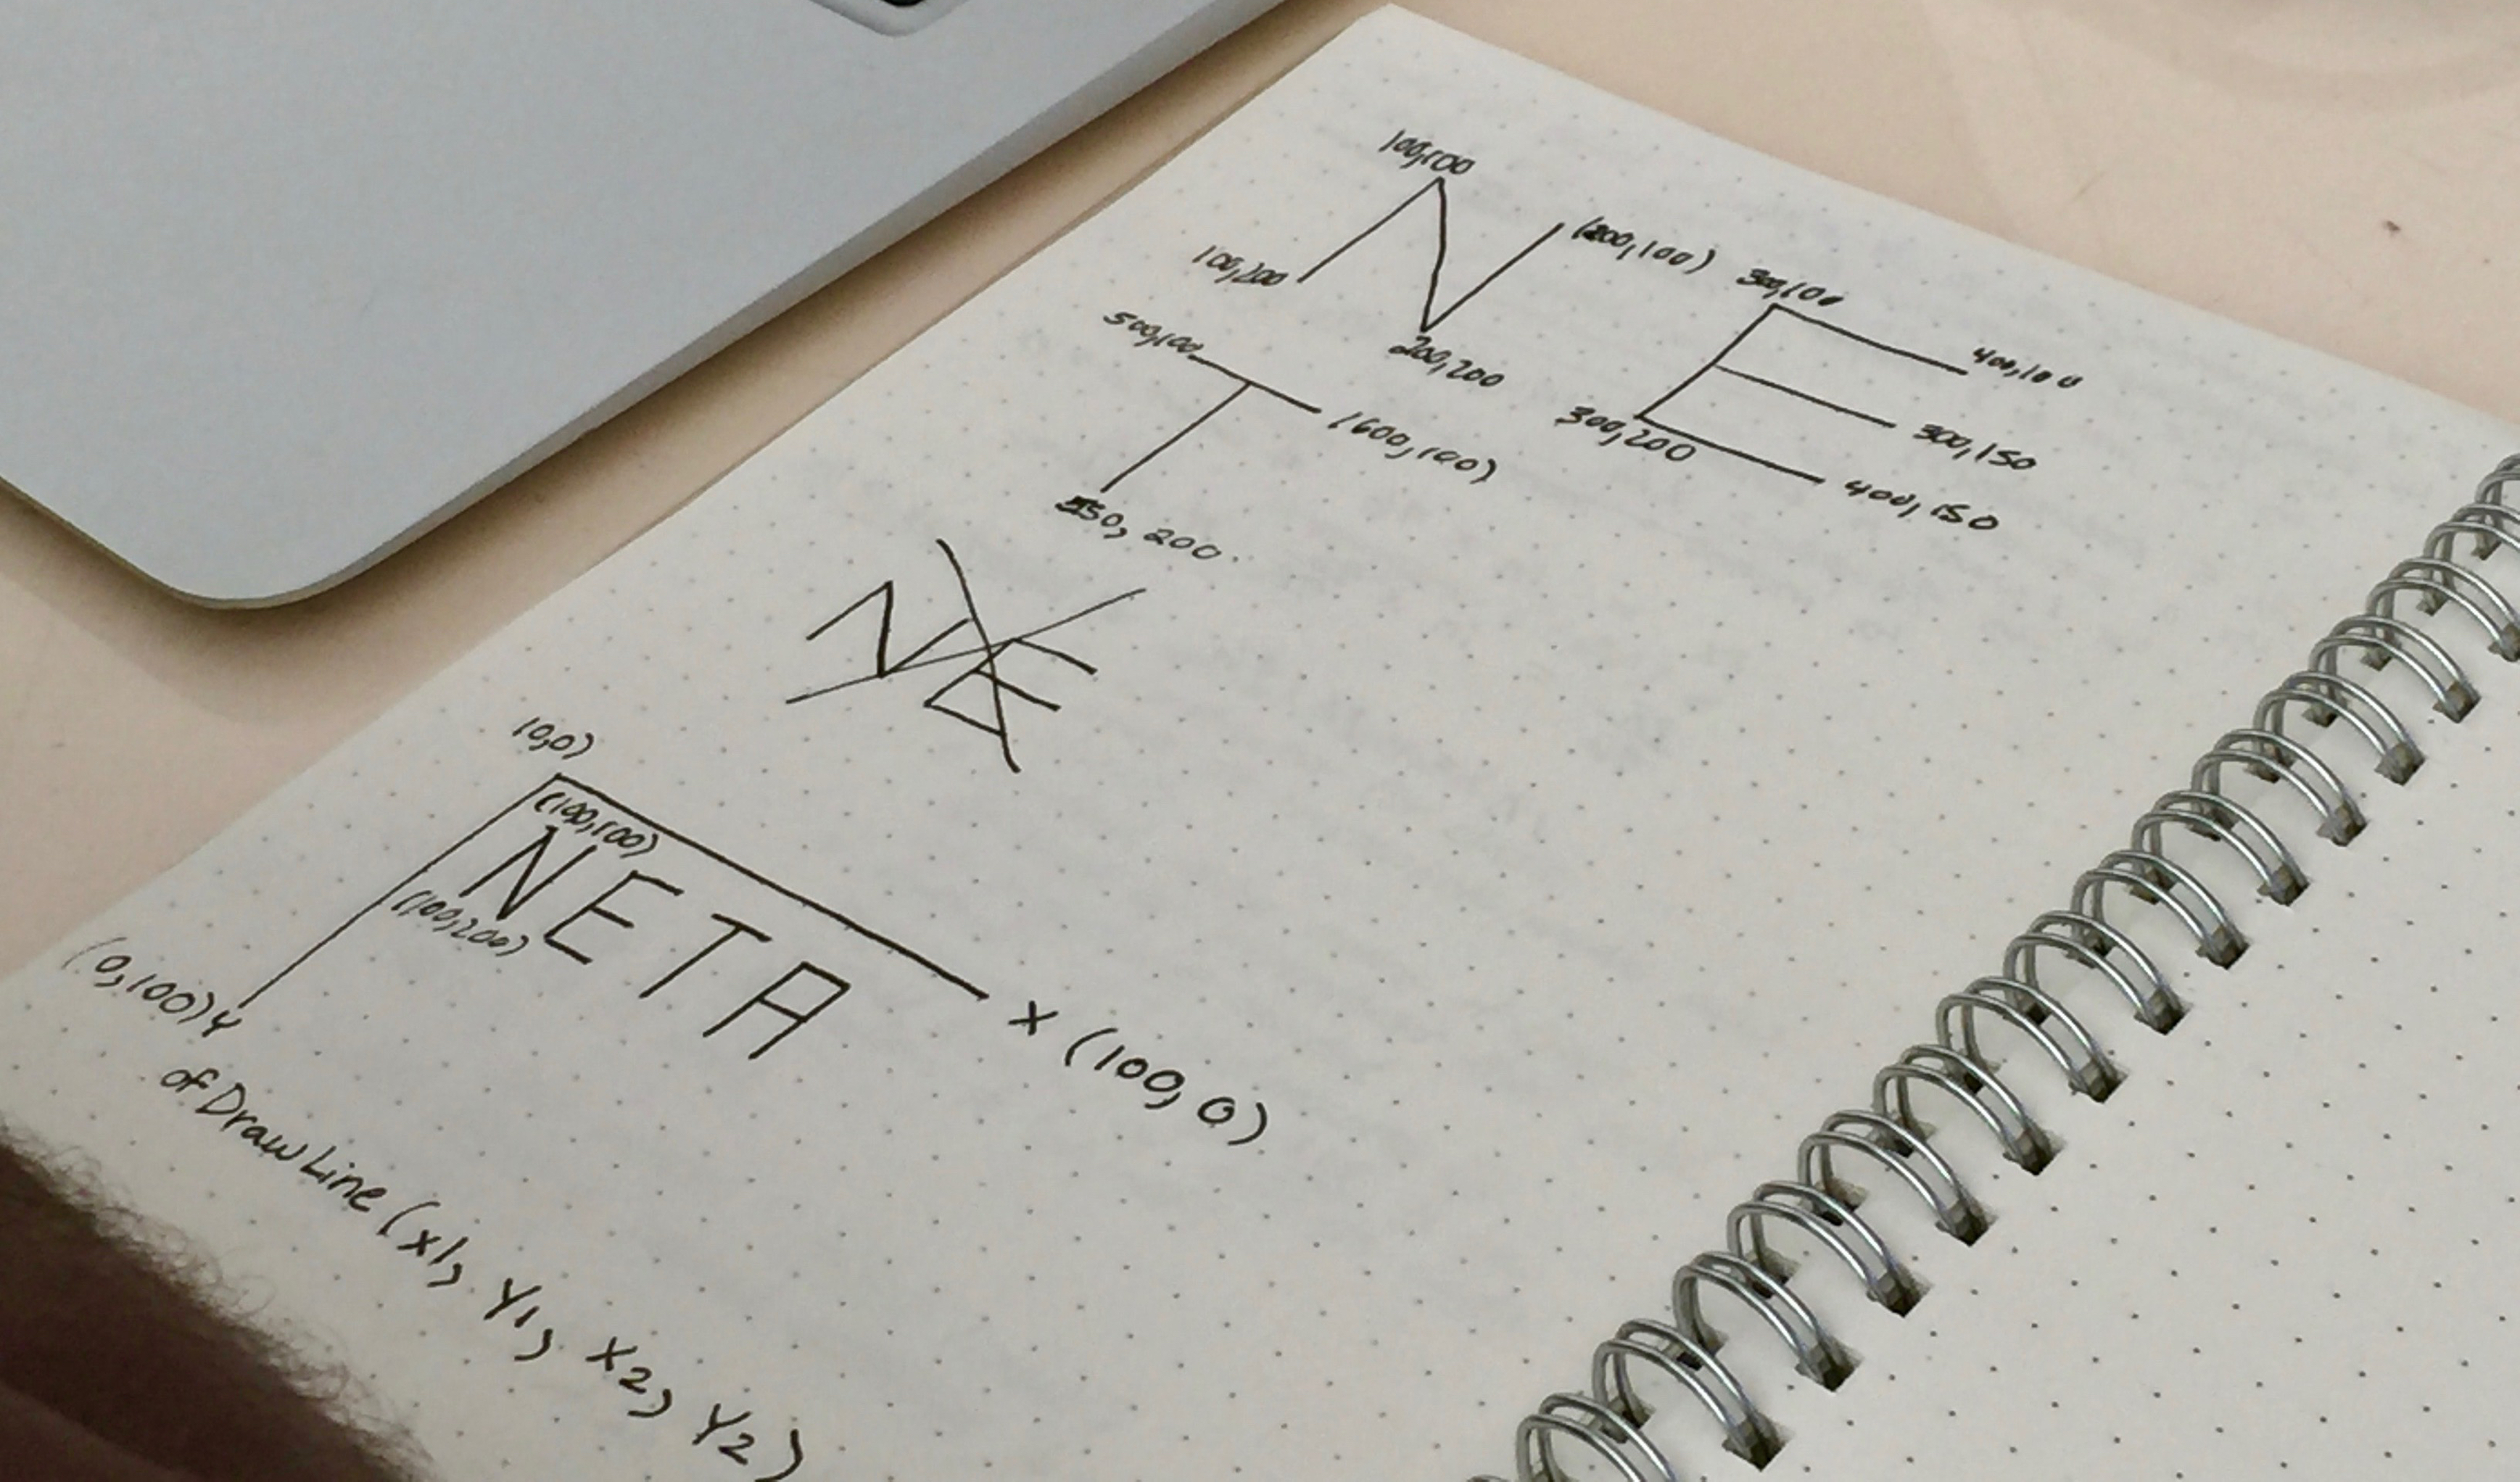 100,100
100,200
(200,100)
200,200
300,100
400,100
300,150
300,200
400,150
500,100
(600,100)
550, 200
NE
(0,0)
(100,100)
NETA
(100,200)
(0,100) Y
X (100, 0)
ofDrawLine (x1, Y1, X2, Y2)